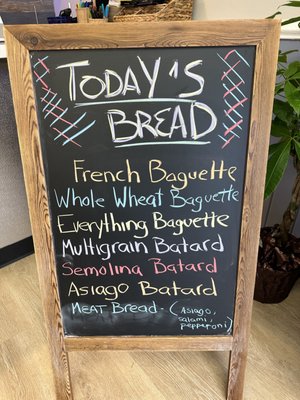 TODAY'S
BREAD
French Baguette
Whole Wheat Baguette
Everything Baguette
Multigrain Batard
Semolina Batard
Asiago Batard
Meat Bread - (Asiago,
salami,
pepperoni)